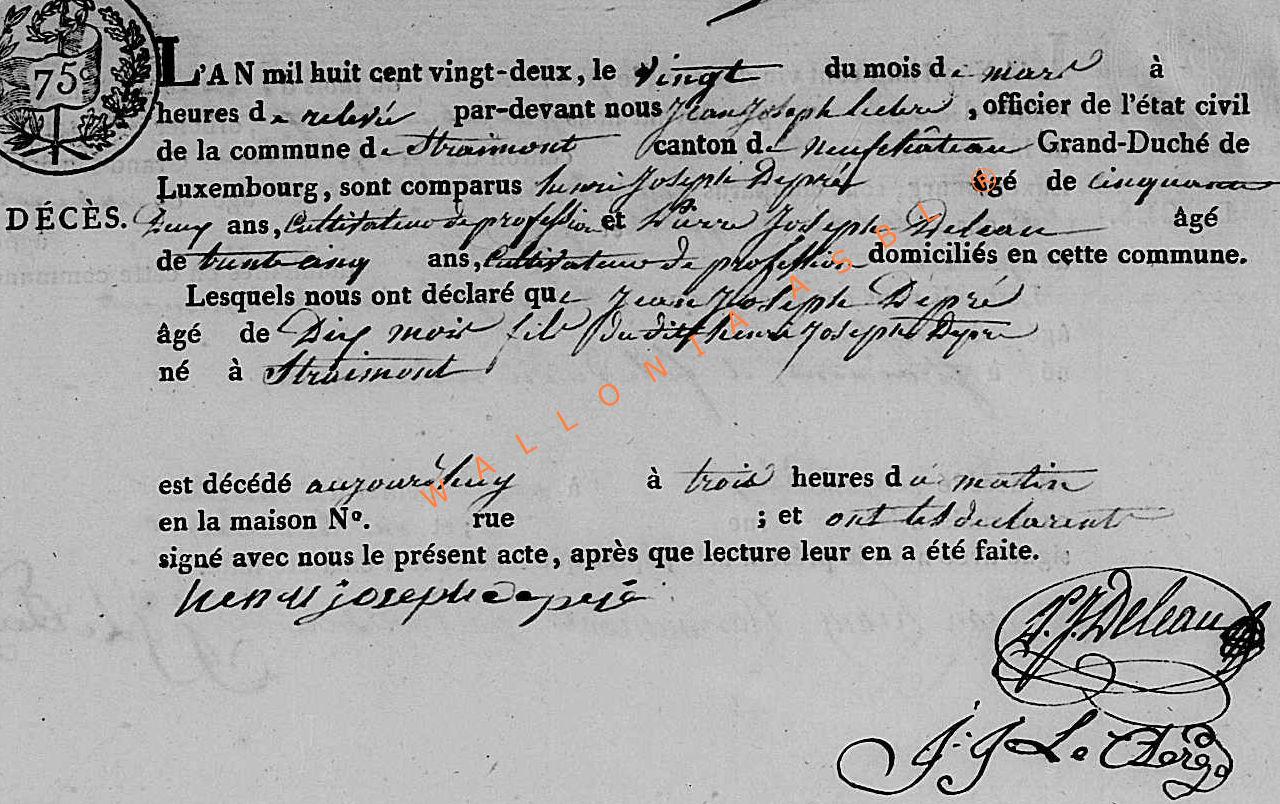 75c
L'AN mil huit cent vingt-deux, le vingt du mois de mars à
heures de relevé par-devant nous Jean Joseph , officier de l'état civil
de la commune de Straimont canton de neufchâteau Grand-Duché de
Luxembourg, sont comparus henri Joseph Depré âgé de cinquante
DÉCÈS. Deux ans, Cultivateur de profession et Pierre Joseph Deleau âgé
de trente cinq ans, Cultivateur de profession domiciliés en cette commune.
Lesquels nous ont déclaré que Jean Joseph Depré
âgé de Dix mois fils dudit henri Joseph Depré
né à Straimont
est décédé aujourd'huy à trois heures du matin
en la maison Nº. rue ; et ont les declarents
signé avec nous le présent acte, après que lecture leur en a été faite.
henri joseph
P. J. Deleau
J. J. Le Clerq
WALLONIA ASBL ©